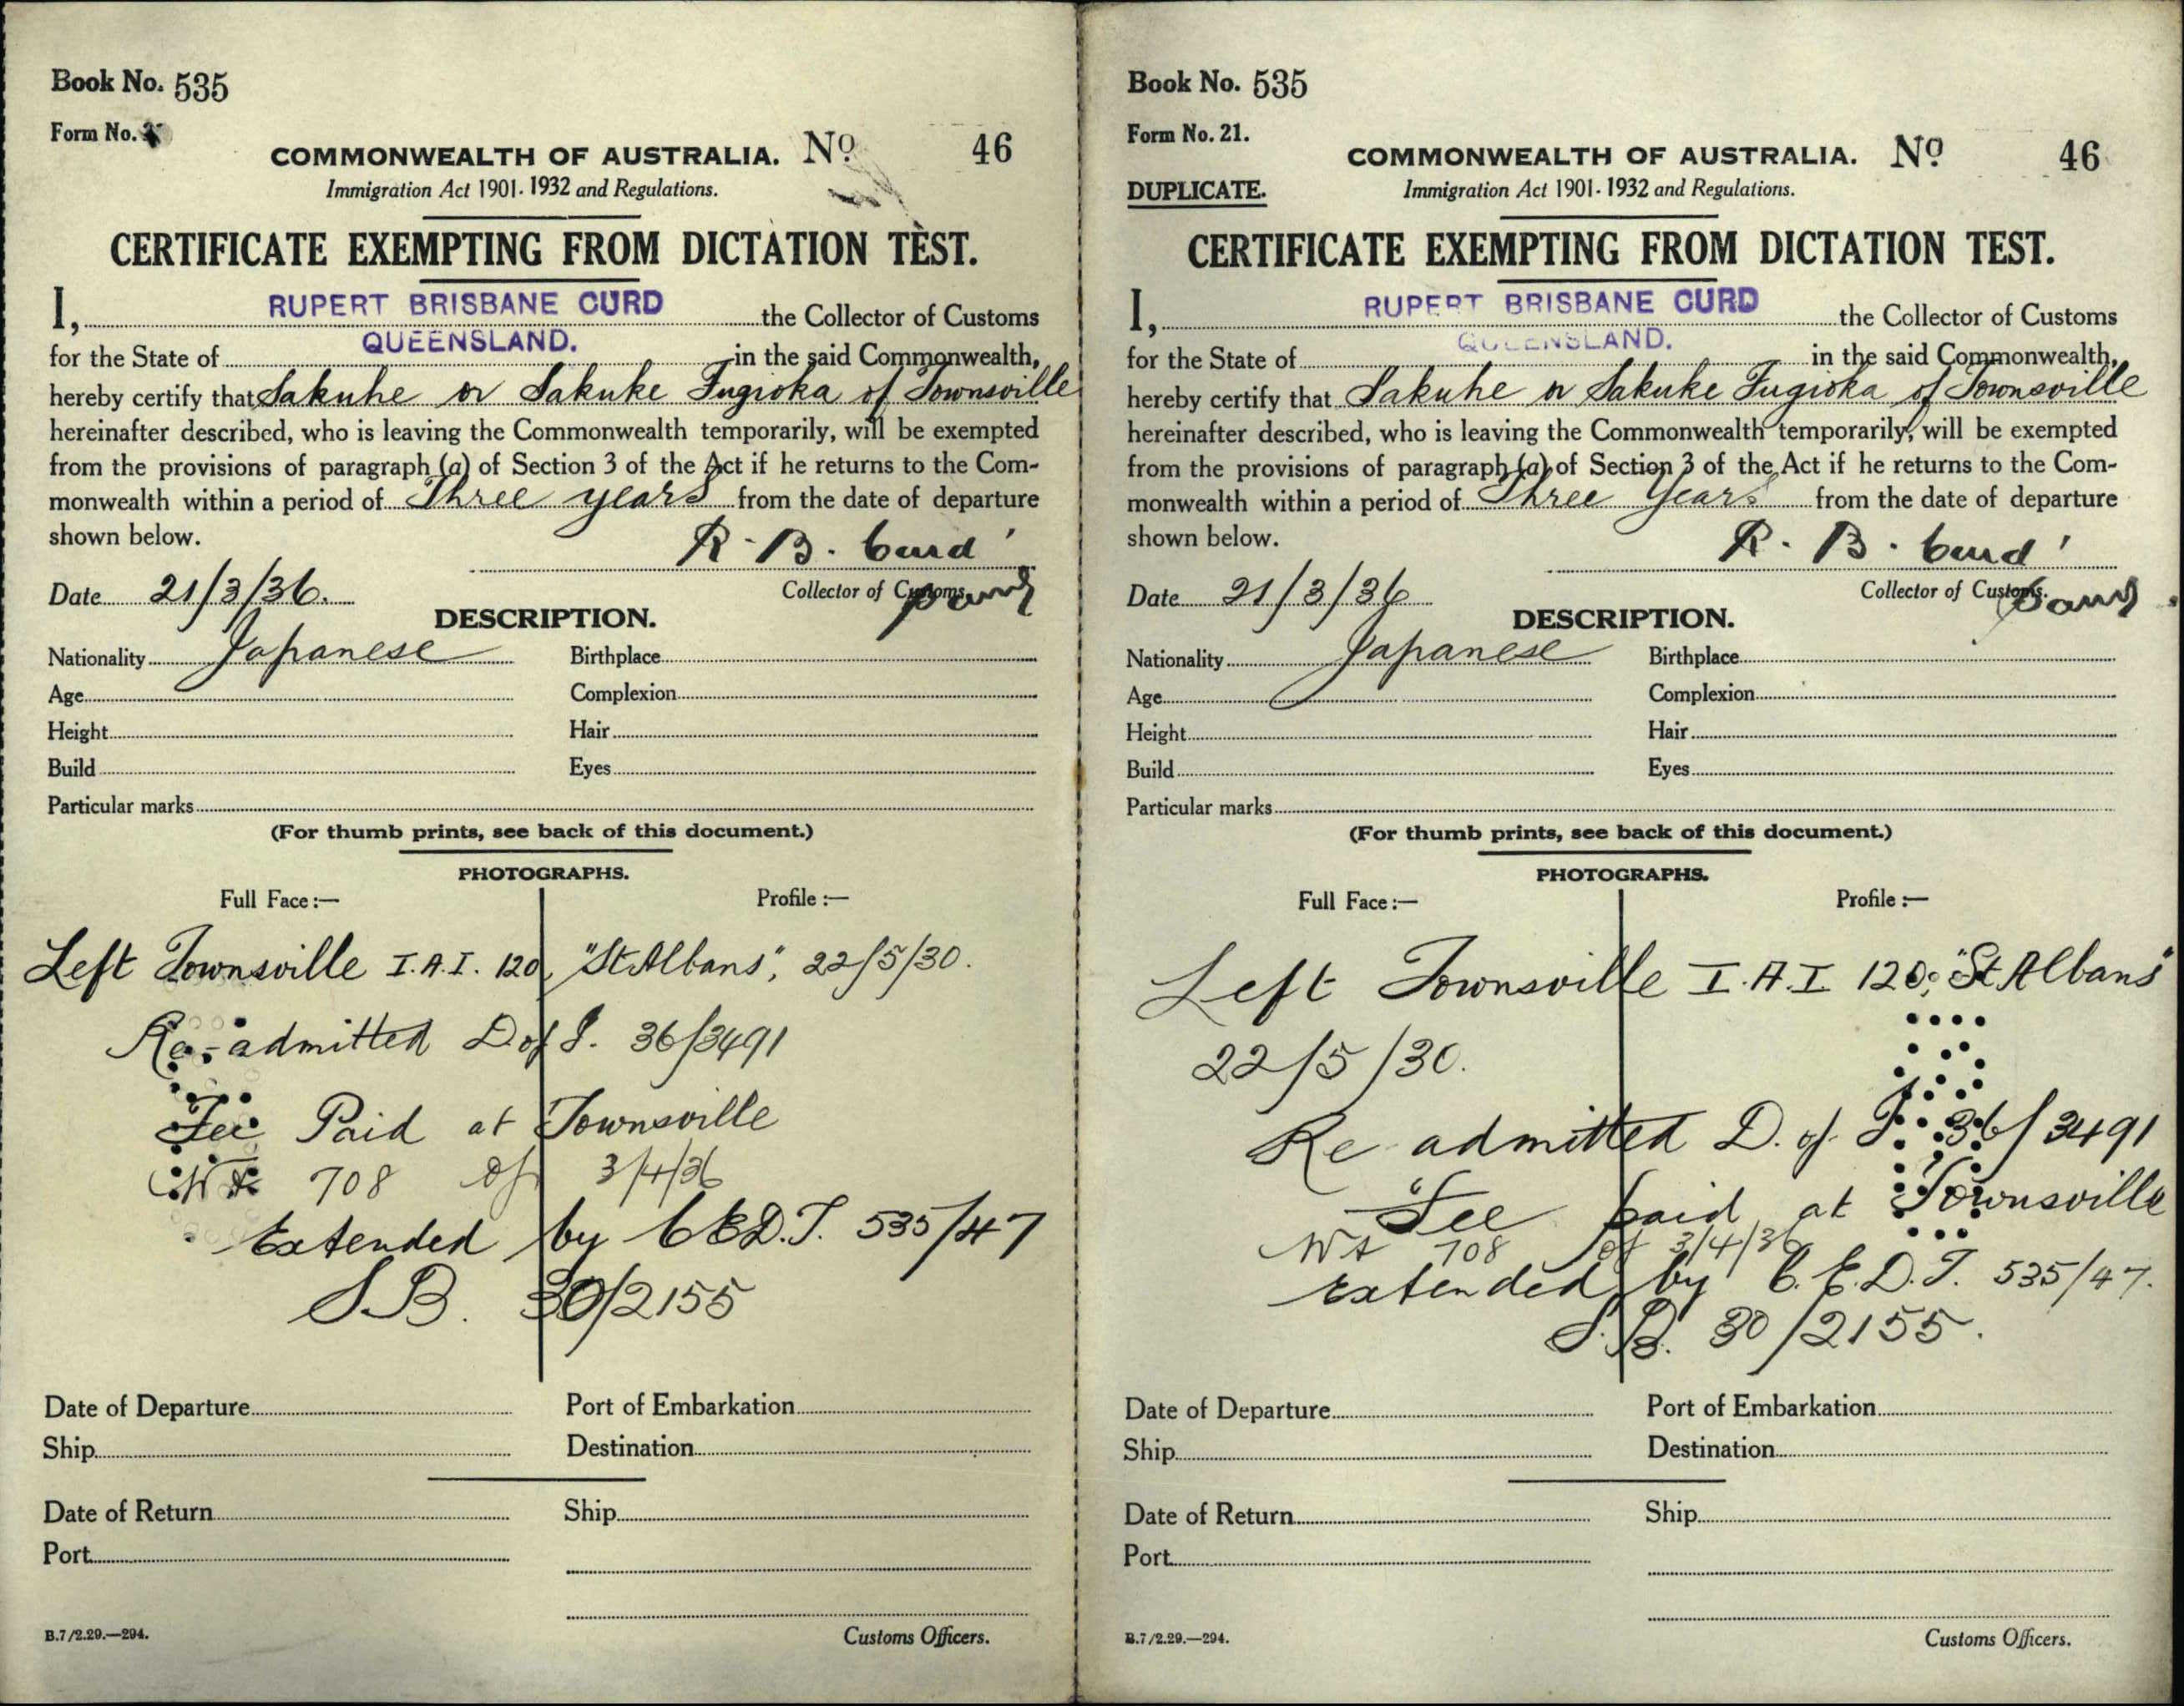 Book No. 535
Form No.
COMMONWEALTH OF AUSTRALIA. No 46
Immigration Act 1901-1932 and Regulations.
CERTIFICATE EXEMPTING FROM DICTATION TEST.
I, RUPERT BRISBANE CURD the Collector of Customs
for the State of QUEENSLAND. in the said Commonwealth,
hereby certify that Sakuhe or Sakuke Fugioka of Townsville
hereinafter described, who is leaving the Commonwealth temporarily, will be exempted
from the provisions of paragraph (a) of Section 3 of the Act if he returns to the Com-
monwealth within a period of Three years from the date of departure
shown below.
R. B. Curd
Date 21/3/36. Collector of Customs
DESCRIPTION.
Nationality Japanese Birthplace
Age Complexion
Height Hair
Build Eyes
Particular marks
(For thumb prints, see back of this document.)
PHOTOGRAPHS.
Full Face:— Profile:—
Left Townsville I.A.I. 120, "St Albans", 22/5/30.
Re-admitted D of I. 36/3491
Fee Paid at Townsville
708 of 3/4/36
Extended by C.E.D.T. 535/47
S.B. 30/2155
Date of Departure Port of Embarkation
Ship Destination
Date of Return Ship
Port
B.7/2.29.—294. Customs Officers.
Book No. 535
Form No. 21.
COMMONWEALTH OF AUSTRALIA. No 46
DUPLICATE. Immigration Act 1901-1932 and Regulations.
CERTIFICATE EXEMPTING FROM DICTATION TEST.
I, RUPERT BRISBANE CURD the Collector of Customs
for the State of QUEENSLAND. in the said Commonwealth,
hereby certify that Sakuhe or Sakuke Fugioka of Townsville
hereinafter described, who is leaving the Commonwealth temporarily, will be exempted
from the provisions of paragraph (a) of Section 3 of the Act if he returns to the Com-
monwealth within a period of Three Years from the date of departure
shown below.
R. B. Curd
Date 21/3/36 Collector of Customs.
DESCRIPTION.
Nationality Japanese Birthplace
Age Complexion
Height Hair
Build Eyes
Particular marks
(For thumb prints, see back of this document.)
PHOTOGRAPHS.
Full Face:— Profile:—
Left Townsville I.A.I 120, "St Albans"
22/5/30.
Re admitted D. of I. 36/3491
Fee paid at Townsville
708 of 3/4/36
Extended by C.E.D.T. 535/47.
S.B. 30/2155.
Date of Departure Port of Embarkation
Ship Destination
Date of Return Ship
Port
B.7/2.29.—294. Customs Officers.